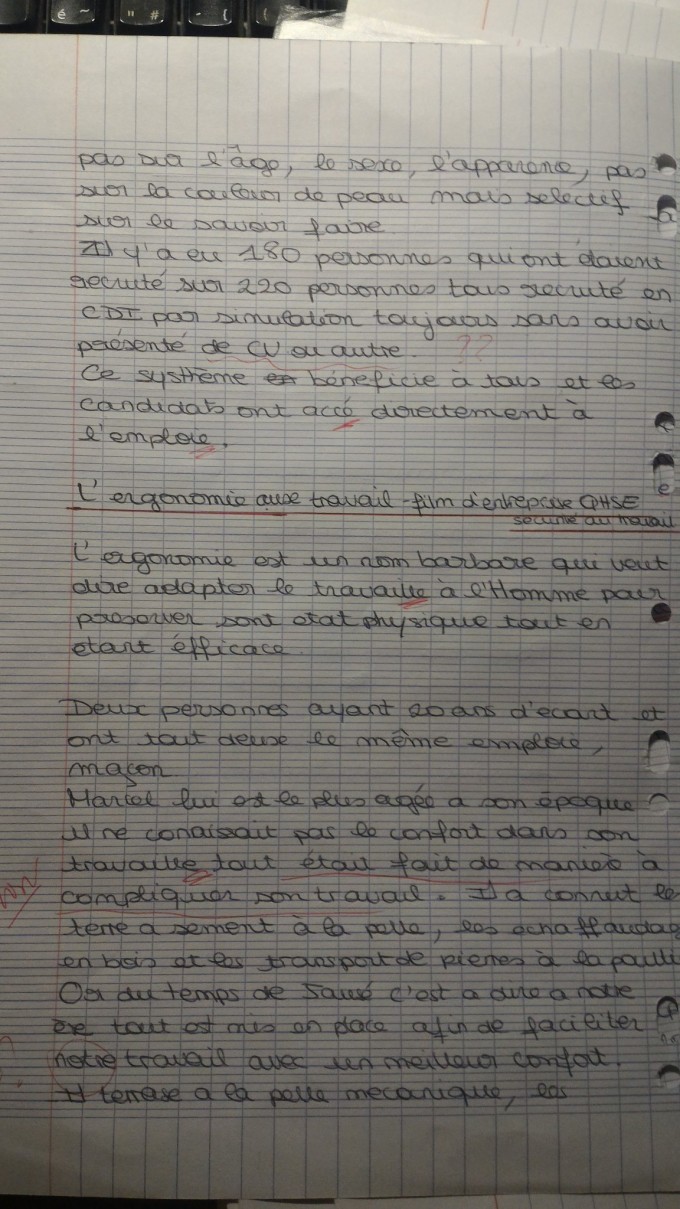 pas sur l'âge, le sexe, l'apparence, pas
sur la couleur de peau mais selectif
sur le savoir faire.
Il y'a eu 180 personnes qui ont étaient
recruté sur 220 personnes tous recruté en
CDI par simulation toujours sans avoir
présenté de CV ou autre. ??
Ce systhème bénéficie à tous et les
candidats ont accé directement à
l'emploie.
L'ergonomie aux travail - film d'entreprise QHSE
securité au travail
L'ergonomie est un nom barbare qui veut
dire adapter le travaille à l'Homme pour
preserver sont etat physique tout en
etant éfficace.
Deux personnes ayant 20 ans d'ecart et
ont tout deux le même emploie,
maçon
Marcel lui est le plus agée a son époque
il ne conaissait pas le confort dans son
travaille tout était fait de manière à
compliquer son travail. Il a connut le
terre a sement à la pelle, les echaffaudag
en bois et les transport de pierres à la paull
Or du temps de José c'est a dire a notre
ère tout est mis en place afin de faciliter
notre travail avec un meilleur confort.
Il terrase a la pelle mecanique, les